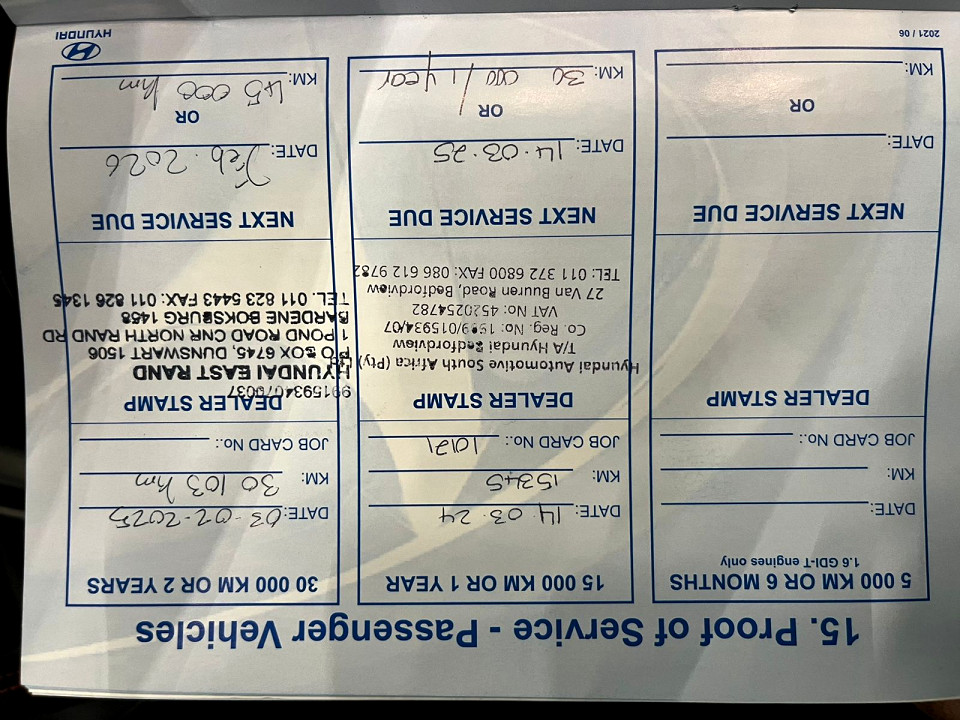 15. Proof of Service - Passenger Vehicles
5 000 KM OR 6 MONTHS
1.6 GDI-T engines only
DATE:
KM:
JOB CARD No.:
DEALER STAMP
NEXT SERVICE DUE
DATE:
OR
KM:
15 000 KM OR 1 YEAR
DATE: 14.03.24
KM: 15345
JOB CARD No.: 10121
DEALER STAMP
Hyundai Automotive South Africa (Pty) Ltd
T/A Hyundai Bedfordview
Co. Reg. No: 1999/015934/07
VAT No: 4520254782
27 Van Buuren Road, Bedfordview
TEL: 011 372 6800 FAX: 086 612 9782
NEXT SERVICE DUE
DATE: 14.03.25
OR
KM: 30 000 / 1 year
30 000 KM OR 2 YEARS
DATE: 03-02-2025
KM: 30 103 km
JOB CARD No.:
DEALER STAMP
9915934070037
HYUNDAI EAST RAND
P O BOX 6745, DUNSWART 1506
1 POND ROAD CNR NORTH RAND RD
BARDENE BOKSBURG 1459
TEL. 011 823 5443 FAX: 011 826 1345
NEXT SERVICE DUE
DATE: Feb. 2026
OR
KM: 45 000 km
2021 / 06
HYUNDAI